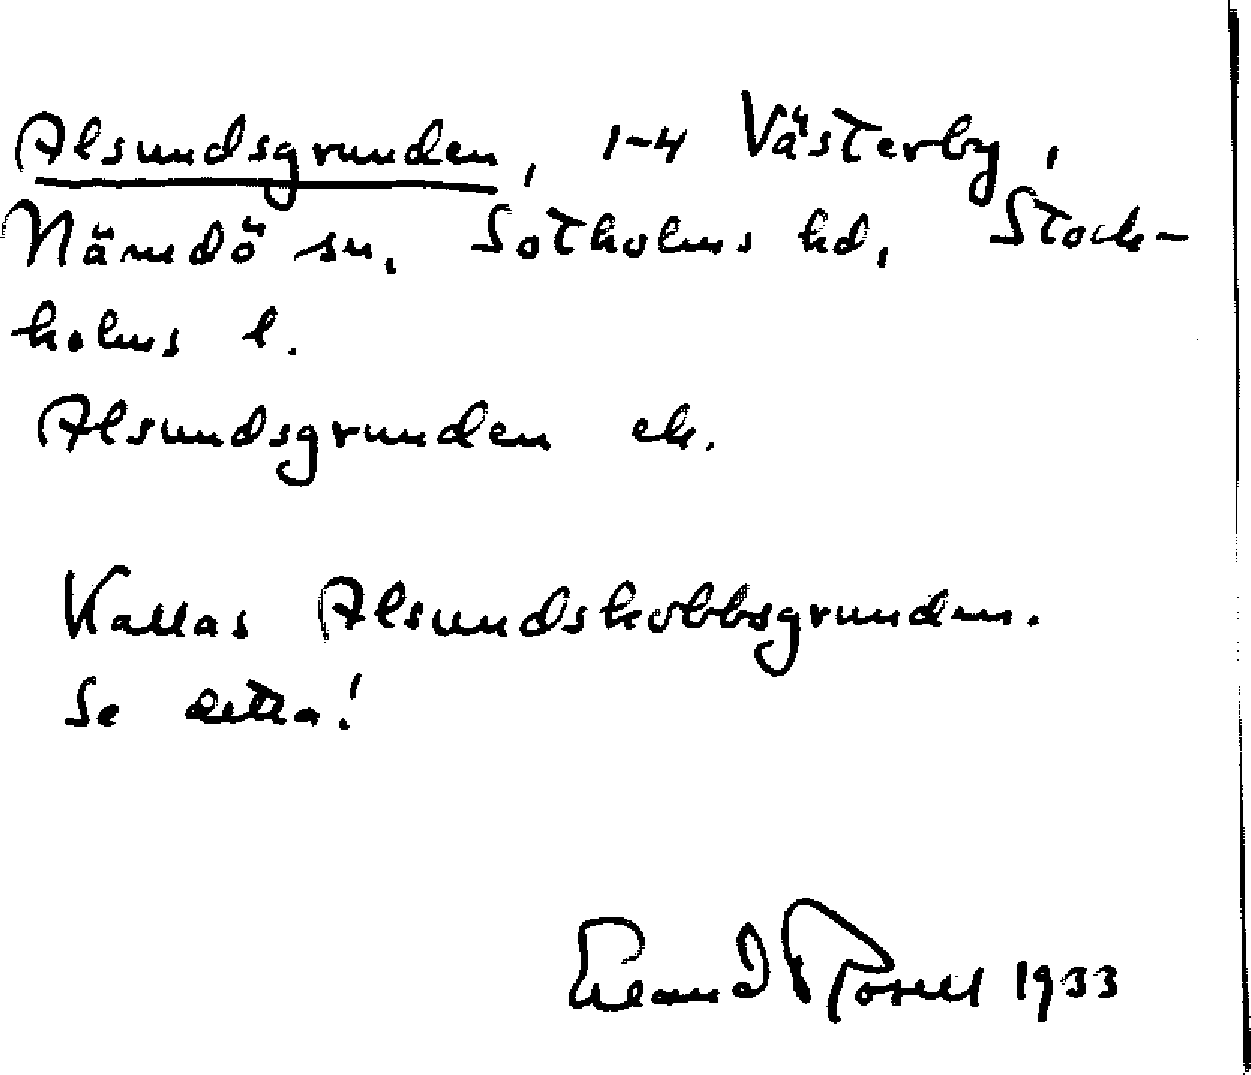 Alsundsgrunden, 1-4 Västerby,
Nämdö sn, Sotholms hd, Stock-
holms l.
Alsundsgrunden ek.
Kallas Alsundskobbsgrunden.
Se detta!
Erland Rosell 1933